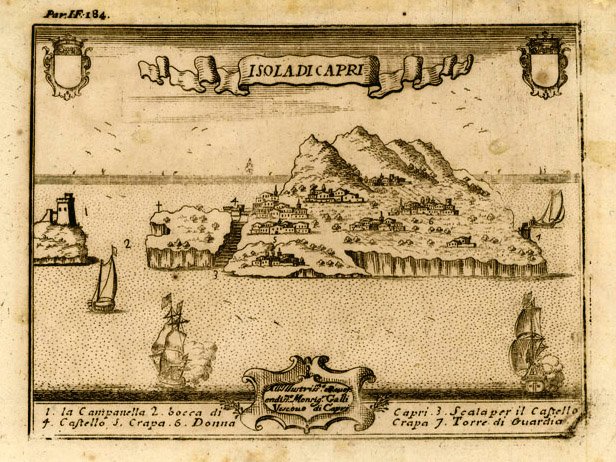 Par. I F. 184.
ISOLA DI CAPRI
1
2
3
All Illustriss.º e Rever
endiss.º Monsig.r Galli
Vescouo di Capri
1. la Campanella 2. bocca di Capri. 3. Scala per il Castello
4. Castello 5. Crapa. 6. Donna Crapa 7. Torre di Guardia